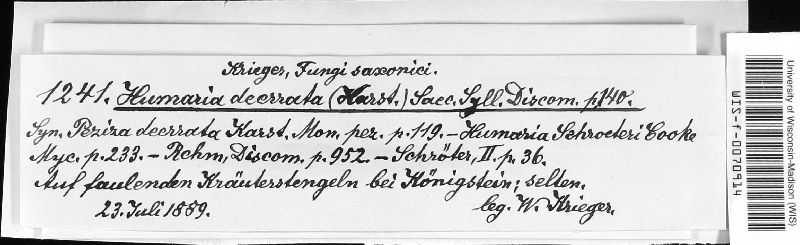 Krieger, Fungi saxonici.
1241. Humaria deerrata (Karst.) Sacc. Syll. Discom. p. 140.
Syn. Peziza deerrata Karst. Mon. pez. p. 119. – Humaria Schroeteri Cooke
Myc. p. 233. – Rehm, Discom. p. 952. – Schröter, II. p. 36.
Auf faulenden Kräuterstengeln bei Königstein; selten.
23. Juli 1889. leg. W. Krieger.
WIS-f-0070914
University of Wisconsin-Madison (WIS)